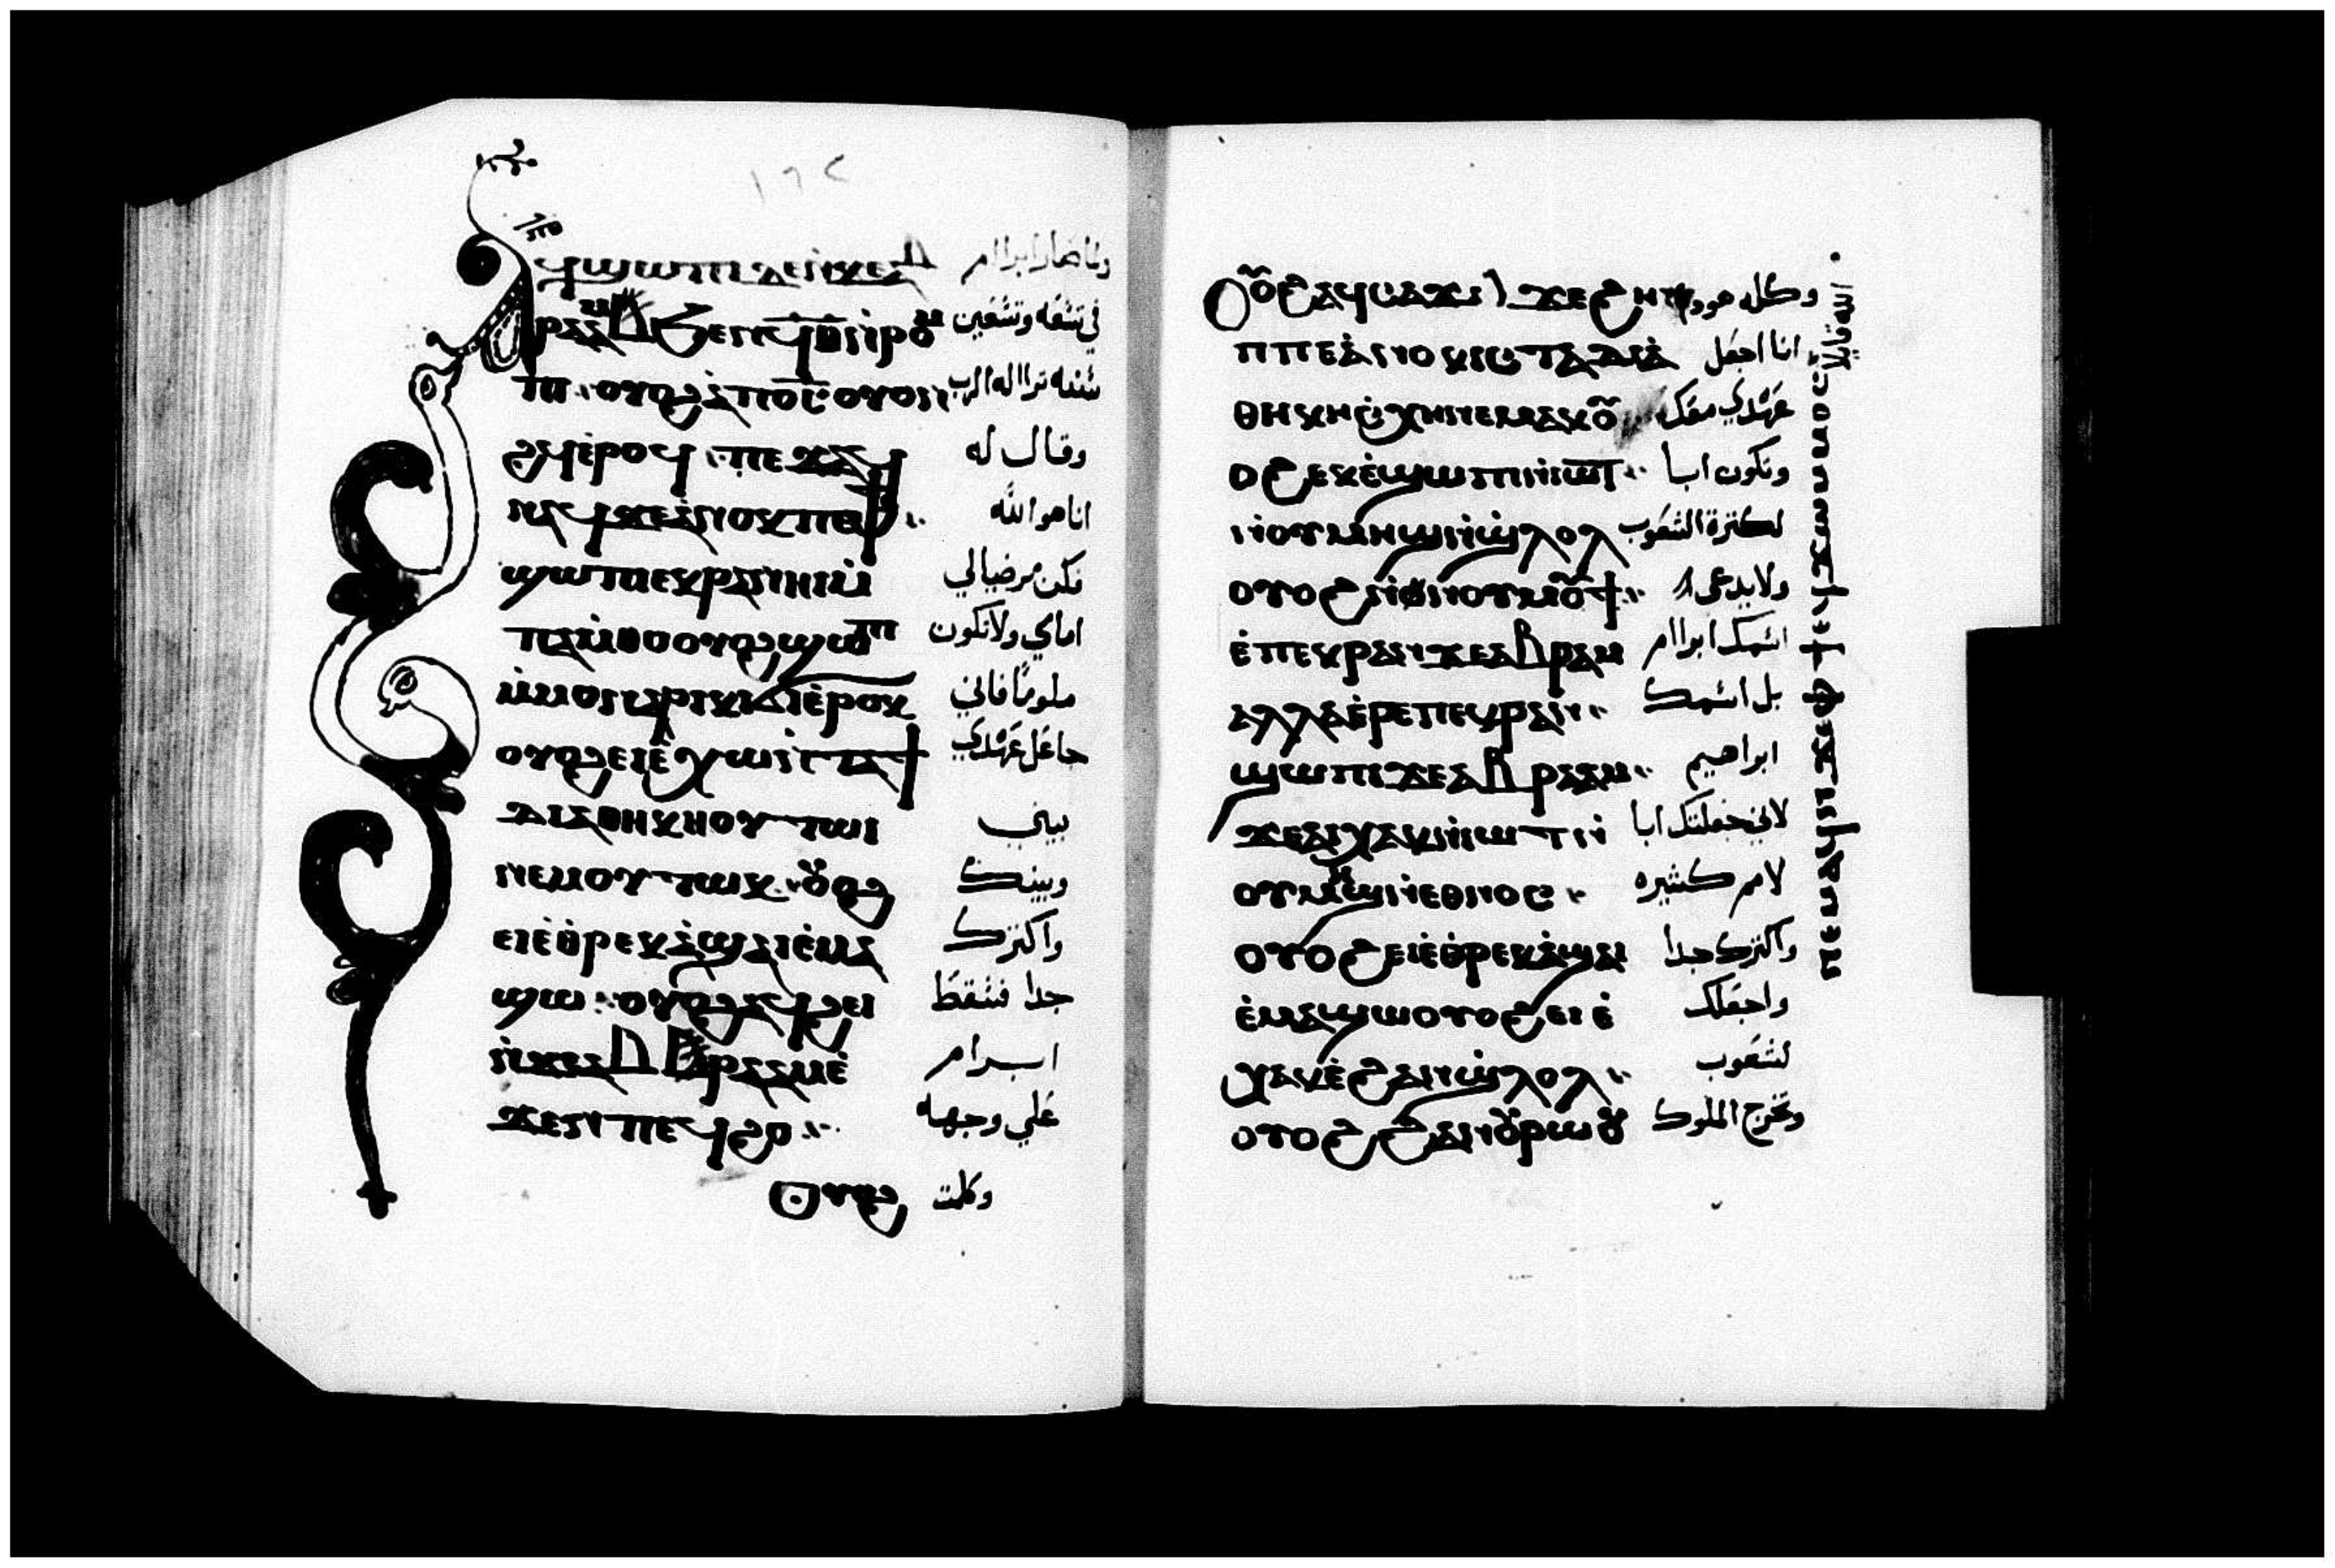 ١٦٤
ⲁϥϣⲱⲡⲓ ⲇⲉ ⲛ̇ϫⲉ ⲁⲃ ولما صار ابراام
ⲣⲁⲁⲙ ϧⲉⲛ ϥ̅ⲑ̅ ⲛ̇ⲣⲟⲙ في تسعه وتسعين
ⲡⲓ ⲟⲩⲟϩ ⲁ̇ⲡⲟ̅ⲥ̅ ⲟⲩⲟⲛ سنه ترااله الرب
ϩϥ ⲉ̇ⲣⲟϥ ⲡⲉϫⲁϥ وقال له
ⲛⲁϥ ϫⲉ ⲁⲛⲟⲕ ⲡⲉ ⲫϯ انا هو الله
ϣⲱⲡⲓ ⲉⲕⲣⲁⲛⲏⲓ ⲙ̇ فكن مرضيا لي
ⲡⲁⲙ̇ⲑⲟ ⲟⲩⲟϩ ϣⲱⲡⲓ امامي ولا تكون
ⲙ̇ⲙⲟⲛ ⲁⲣⲓⲕⲓ ⲉ̇ⲣⲟⲕ ملوما فاني
ⲟⲩⲟϩ ⲉⲓⲉ̇ⲭⲱ ⲛ̇ⲧⲁ جاعل عهدي
ⲇⲓⲁⲑⲏⲕⲏ ⲟⲩⲧⲱⲓ بيني
ⲛⲉⲙ ⲟⲩⲧⲱⲕ ⲟⲩⲟϩ وبينك
ⲉⲓⲉ̇ⲑⲣⲉⲕⲁ̇ϣⲁⲓ ⲉ̇ⲙⲁ واكثرك
ϣⲱ ⲟⲩⲟϩ ⲁϥϩⲉⲓ جدا فسقط
ⲛ̇ϫⲉ ⲁⲃⲣⲁⲁⲙ ⲉ̇ ابرام
ϫⲉⲛ ⲡⲉϥϩⲟ علي وجهه
ⲟⲩⲟϩ وكلمت
ⲟⲩⲟϩ ⲁϥⲥⲁϫⲓ ϫⲉ ϩⲏⲡ وكله هوذا
ⲡⲡⲉ ⲁ̇ⲛⲟⲕ ⲓⲥ ⲧⲁⲇⲓⲁ انا اجعل
ⲑⲏⲕⲏ ⲥ̇ⲭⲏ ⲛⲉⲙⲁⲕ ⲟⲩ عهدي معك
ⲟϩ ⲉⲕⲉ̇ϣⲱⲡⲓ ⲛ̇ⲓⲱⲧ وتكون ابا
ⲛ̇ⲟⲩⲙⲏϣ ⲛ̇ϣ̇ⲗⲟⲗ لكثرة الشعوب
ⲟⲩⲟϩ ⲛ̇ⲛⲟⲩⲙⲟⲩϯ ولا يدعى
ⲉ̇ⲡⲉⲕⲣⲁⲛ ϫⲉ ⲁⲃⲣⲁⲙ اسمك ابراام
ⲁⲗⲗⲁ ⲉ̇ⲣⲉ ⲡⲉⲕⲣⲁⲛ بل اسمك
ϣⲱⲡⲓ ϫⲉ ⲁⲃⲣⲁⲁⲙ ابراهيم
ϫⲉ ⲁⲓⲭⲁⲕ ⲛ̇ⲓⲱⲧ ⲛ̇ لاني جعلتك ابا
ⲟⲩⲙⲏϣ ⲛ̇ⲉⲑⲛⲟⲥ لامم كثيره
ⲟⲩⲟϩ ⲉⲓⲉ̇ⲑⲣⲉⲕⲁ̇ϣⲁⲓ واكثرك جدا
ⲉ̇ⲙⲁϣⲱ ⲟⲩⲟϩ ⲉⲓⲉ̇ واجعلك
ⲭⲁⲕ ⲉ̇ϩⲁⲛϣ̇ⲗⲟⲗ لشعوب
ⲟⲩⲟϩ ϩⲁⲛⲟⲩⲣⲱⲟⲩ وتخرج الملوك
الله قايلا
ⲛⲉⲙⲁϥ ⲛ̇ϫⲉ ⲫϯ ⲉϥϫⲱ ⲙ̇ⲙⲟⲥ